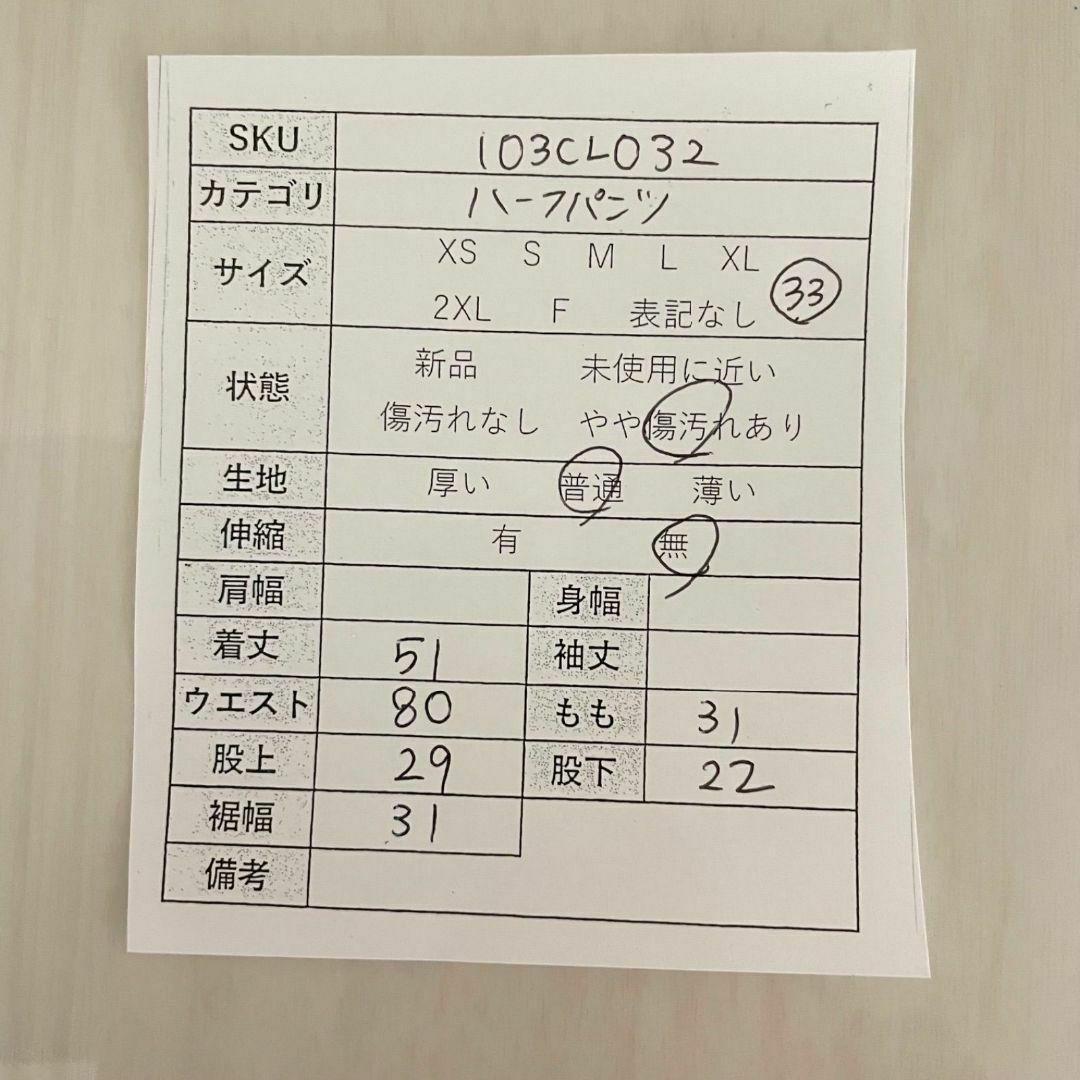 SKU 103CL032
カテゴリ ハーフパンツ
サイズ XS S M L XL
2XL F 表記なし 33
状態 新品 未使用に近い
傷汚れなし やや傷汚れあり
生地 厚い 普通 薄い
伸縮 有 無
肩幅 身幅
着丈 51 袖丈
ウエスト 80 もも 31
股上 29 股下 22
裾幅 31
備考